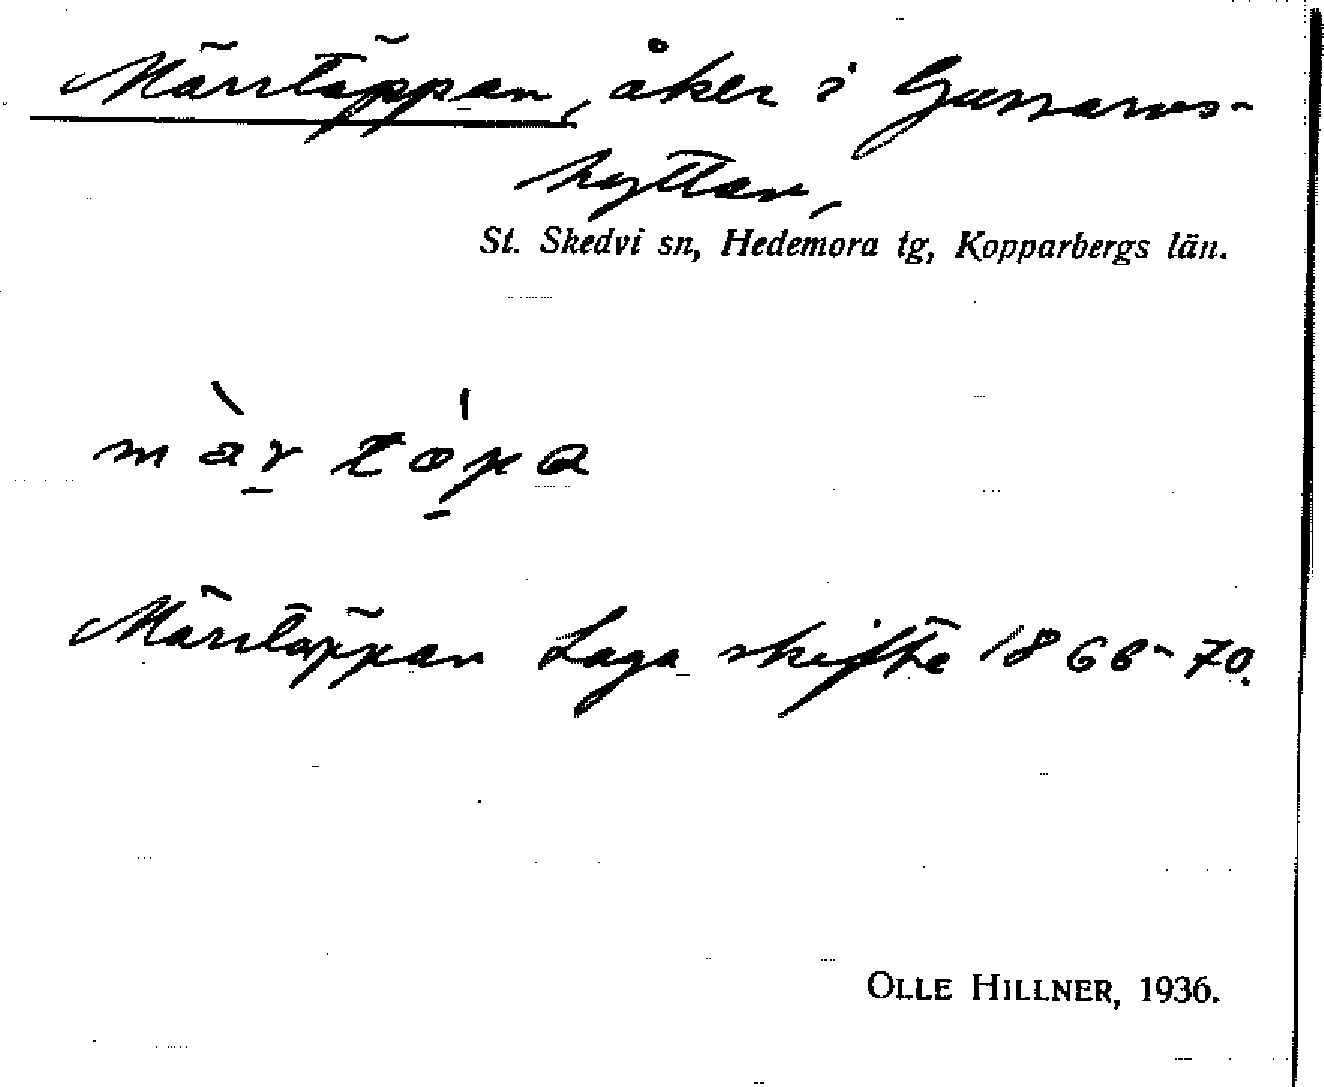 Märrtäppan, åker i Gunnars-
hyttan,
St. Skedvi sn, Hedemora tg, Kopparbergs län.
Märrtäppan Laga skifte 1866-70.
OLLE HILLNER, 1936.